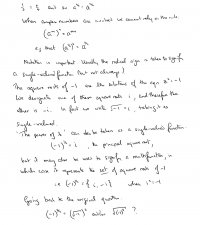 ½ = ²⁄₄ but is a^½ = a^²⁄₄
When complex numbers are involved we cannot rely on the rule
(a^m)^n = a^mn
eg that (a²)^½ = a
Notation is important. Usually the radical sign is taken to signify
a single-valued function (but not always!)
The square roots of -1 are the solutions of the eqn z² = -1
We designate one of these square roots i, and therefore the
other is -i. In fact we write √-1 = i, taking √ as
single-valued.
The power of ½ can also be taken as a single-valued function
(-1)^½ = i, the principal square root,
but it may also be used to signify a multifunction, in
which case it represents the set of square roots of -1
ie (-1)^½ = {i, -i} where i² = -1
Going back to the original question
(-1)^²⁄₄ = (√-1)² and/or √(-1)² ?